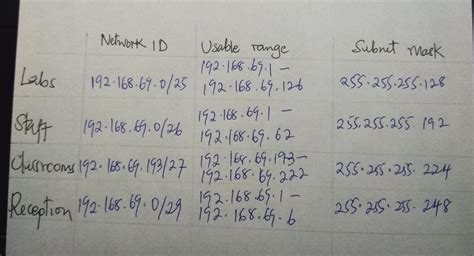 Network ID Usable range Subnet mask
192.168.69.1 –
Labs 192.168.69.0/25 192.168.69.126 255.255.255.128
192.168.69.1 –
Staff 192.168.69.0/26 192.168.69.62 255.255.255.192
Classrooms 192.168.69.193/27 192.168.69.193– 255.255.255.224
192.168.69.222
Reception 192.168.69.0/29 192.168.69.1 – 255.255.255.248
192.168.69.6